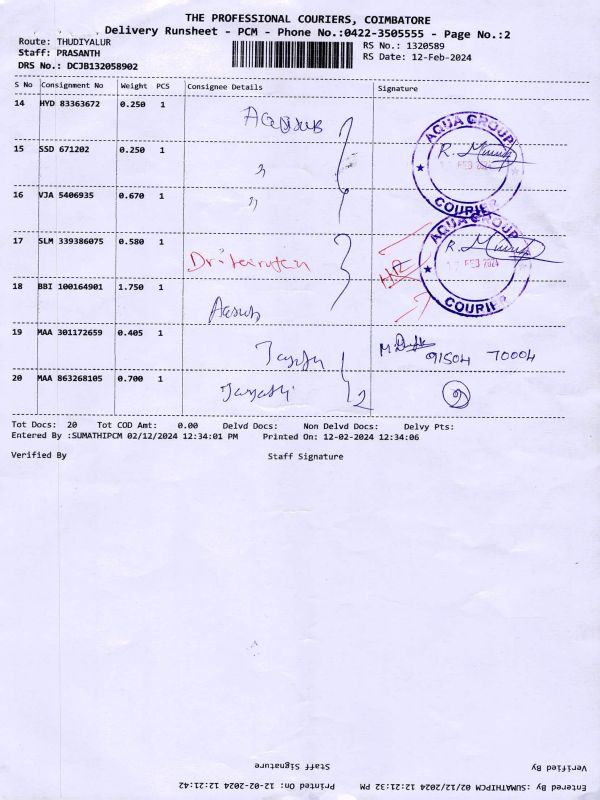 THE PROFESSIONAL COURIERS, COIMBATORE
Delivery Runsheet - PCM - Phone No.:0422-3505555 - Page No.:2
Route: THUDIYALUR
RS No.: 1320589
Staff: PRASANTH
RS Date: 12-Feb-2024
DRS No.: DCJB132058902
S No Consignment No Weight PCS Consignee Details Signature
14 HYD 83363672 0.250 1
15 SSD 671202 0.250 1
16 VJA 5406935 0.670 1
17 SLM 339386075 0.580 1
18 BBI 100164901 1.750 1
19 MAA 301172659 0.405 1
91504 70004
20 MAA 863268105 0.700 1
AQUA GROUP
FEB 2024
COURIER
AQUA GROUP
FEB 2024
COURIER
Tot Docs: 20 Tot COD Amt: 0.00 Delvd Docs: Non Delvd Docs: Delvy Pts:
Entered By :SUMATHIPCM 02/12/2024 12:34:01 PM Printed On: 12-02-2024 12:34:06
Verified By Staff Signature
Verified By Staff Signature
Entered By :SUMATHIPCM 02/12/2024 12:21:32 PM Printed On: 12-02-2024 12:21:42